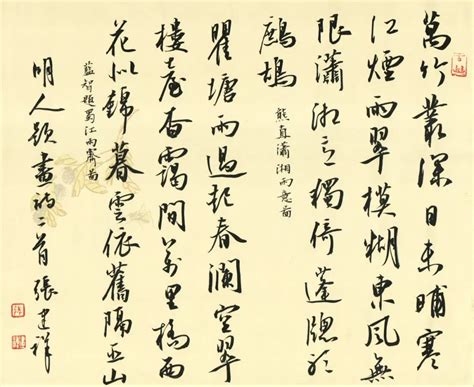 萬竹叢深日未晡寒
江煙雨翠模糊東風無
限瀟湘意獨倚蓬牕聽
鷓鴣
熊直瀟湘雨意圖
瞿塘雨過起春瀾空翠
樓臺杳靄間萬里橋西
花似錦暮雲依舊隔巫山
藍智題蜀江雨霽圖
明人題畫詩二首張建祥